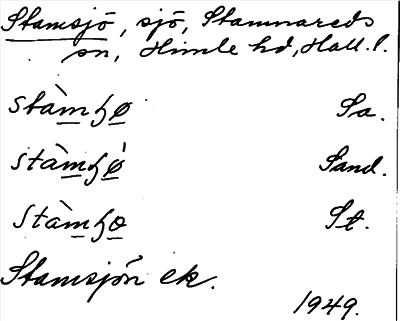 Stamsjö, sjö, Stamnareds
sn, Himle hd, Hall. l.
stàmɧø Sa.
stàmɧø̀ Sand.
stàmɧo St.
Stamsjön ek.
1949.